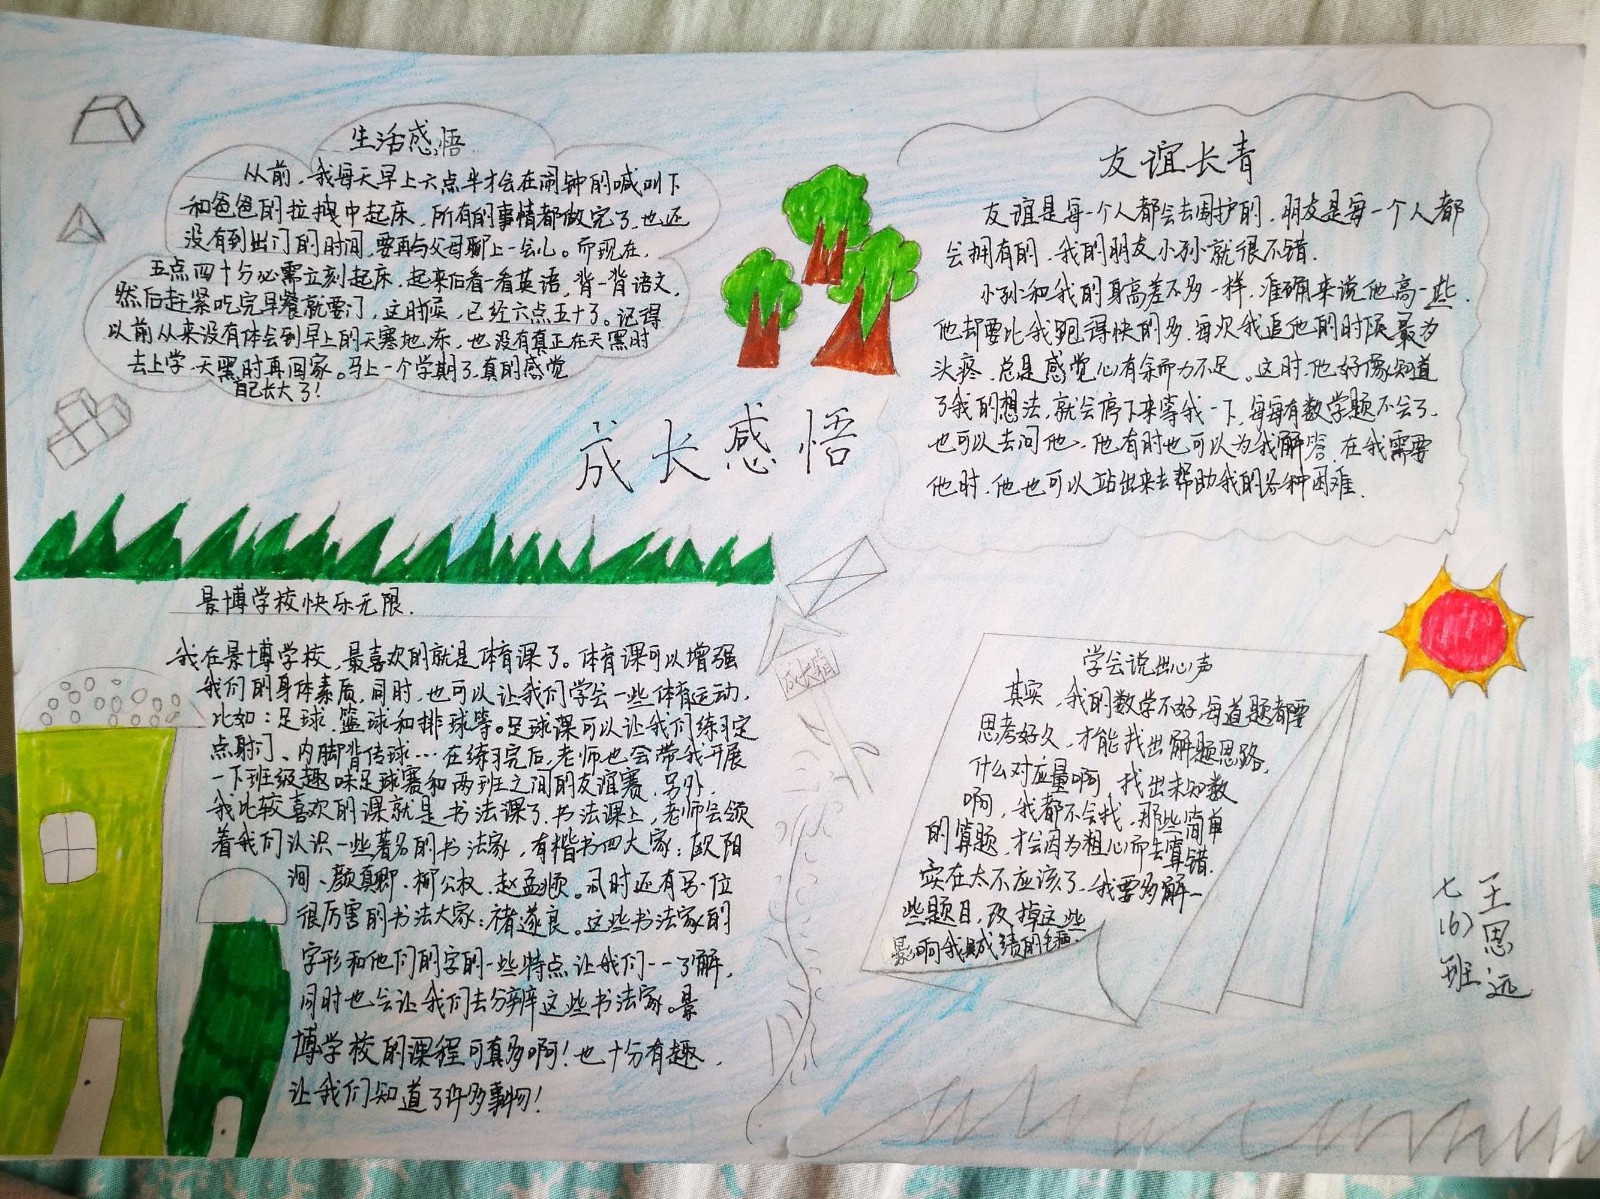 生活感悟
从前,我每天早上六点半才会在闹钟的喊叫下
和爸爸的拉拽中起床,所有的事情都做完了,也还
没有到出门的时间,要再与父母聊上一会儿。而现在,
五点四十分必需立刻起床,起来后看一看英语,背一背语文,
然后赶紧吃完早餐就要门,这时候,已经六点五十了。记得
以前从来没有体会到早上的天寒地冻,也没有真正在天黑时
去上学,天黑时再回家。马上一个学期了,真的感觉
自己长大了!
成长感悟
友谊长青
友谊是每一个人都会去围护的,朋友是每一个人都
会拥有的,我的朋友小孙就很不错.
小孙和我的身高差不多一样,准确来说他高一些.
他却要比我跑得快的多,每次我追他的时候最为
头疼,总是感觉心有余而力不足。这时,他好像知道
了我的想法,就会停下来等我一下,每每有数学题不会了,
也可以去问他,他有时也可以为我解答,在我需要
他时,他也可以站出来去帮助我的各种困难.
景博学校快乐无限.
我在景博学校,最喜欢的就是体育课了。体育课可以增强
我们的身体素质,同时,也可以让我们学会一些体育运动,
比如:足球、篮球和排球等。足球课可以让我们练习定
点射门、内脚背传球…在练习完后,老师也会带我开展
一下班级趣味足球赛和两班之间的友谊赛,另外,
我比较喜欢的课就是书法课了,书法课上,老师会领
着我们认识一些著名的书法家,有楷书四大家:欧阳
询、颜真卿、柳公权、赵孟頫。同时还有另一位
很厉害的书法大家:褚遂良。这些书法家的
字形和他们的字的一些特点让我们一一了解,
同时也会让我们去分辨这些书法家。景
博学校的课程可真多啊!也十分有趣,
让我们知道了许多事物!
成长箱
学会说出心声
其实,我的数学不好,每道题都要
思考好久,才能找出解题思路,
什么对应量啊 找出未知数
啊,我都不会找,那些简单
的算题,才会因为粗心而去算错.
实在太不应该了,我要多解一
些题目,改掉这些
影响我成绩的毛病.
七(6)班
王思远